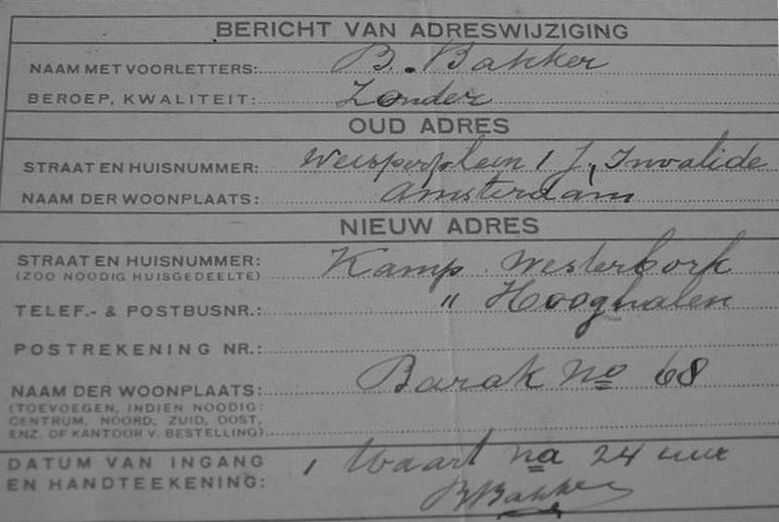 BERICHT VAN ADRESWIJZIGING
NAAM MET VOORLETTERS: B. Bakker
BEROEP, KWALITEIT: Zonder
OUD ADRES
STRAAT EN HUISNUMMER: Weesperplein 1 J. Invalide
NAAM DER WOONPLAATS: Amsterdam
NIEUW ADRES
STRAAT EN HUISNUMMER: Kamp Westerbork
(ZOO NOODIG HUISGEDEELTE)
TELEF.- & POSTBUSNR.: " Hooghalen
POSTREKENING NR.:
NAAM DER WOONPLAATS: Barak No 68
(TOEVOEGEN, INDIEN NOODIG:
CENTRUM, NOORD, ZUID, OOST,
ENZ. OF KANTOOR V. BESTELLING)
DATUM VAN INGANG 1 Maart na 24 uur
EN HANDTEEKENING: B Bakker